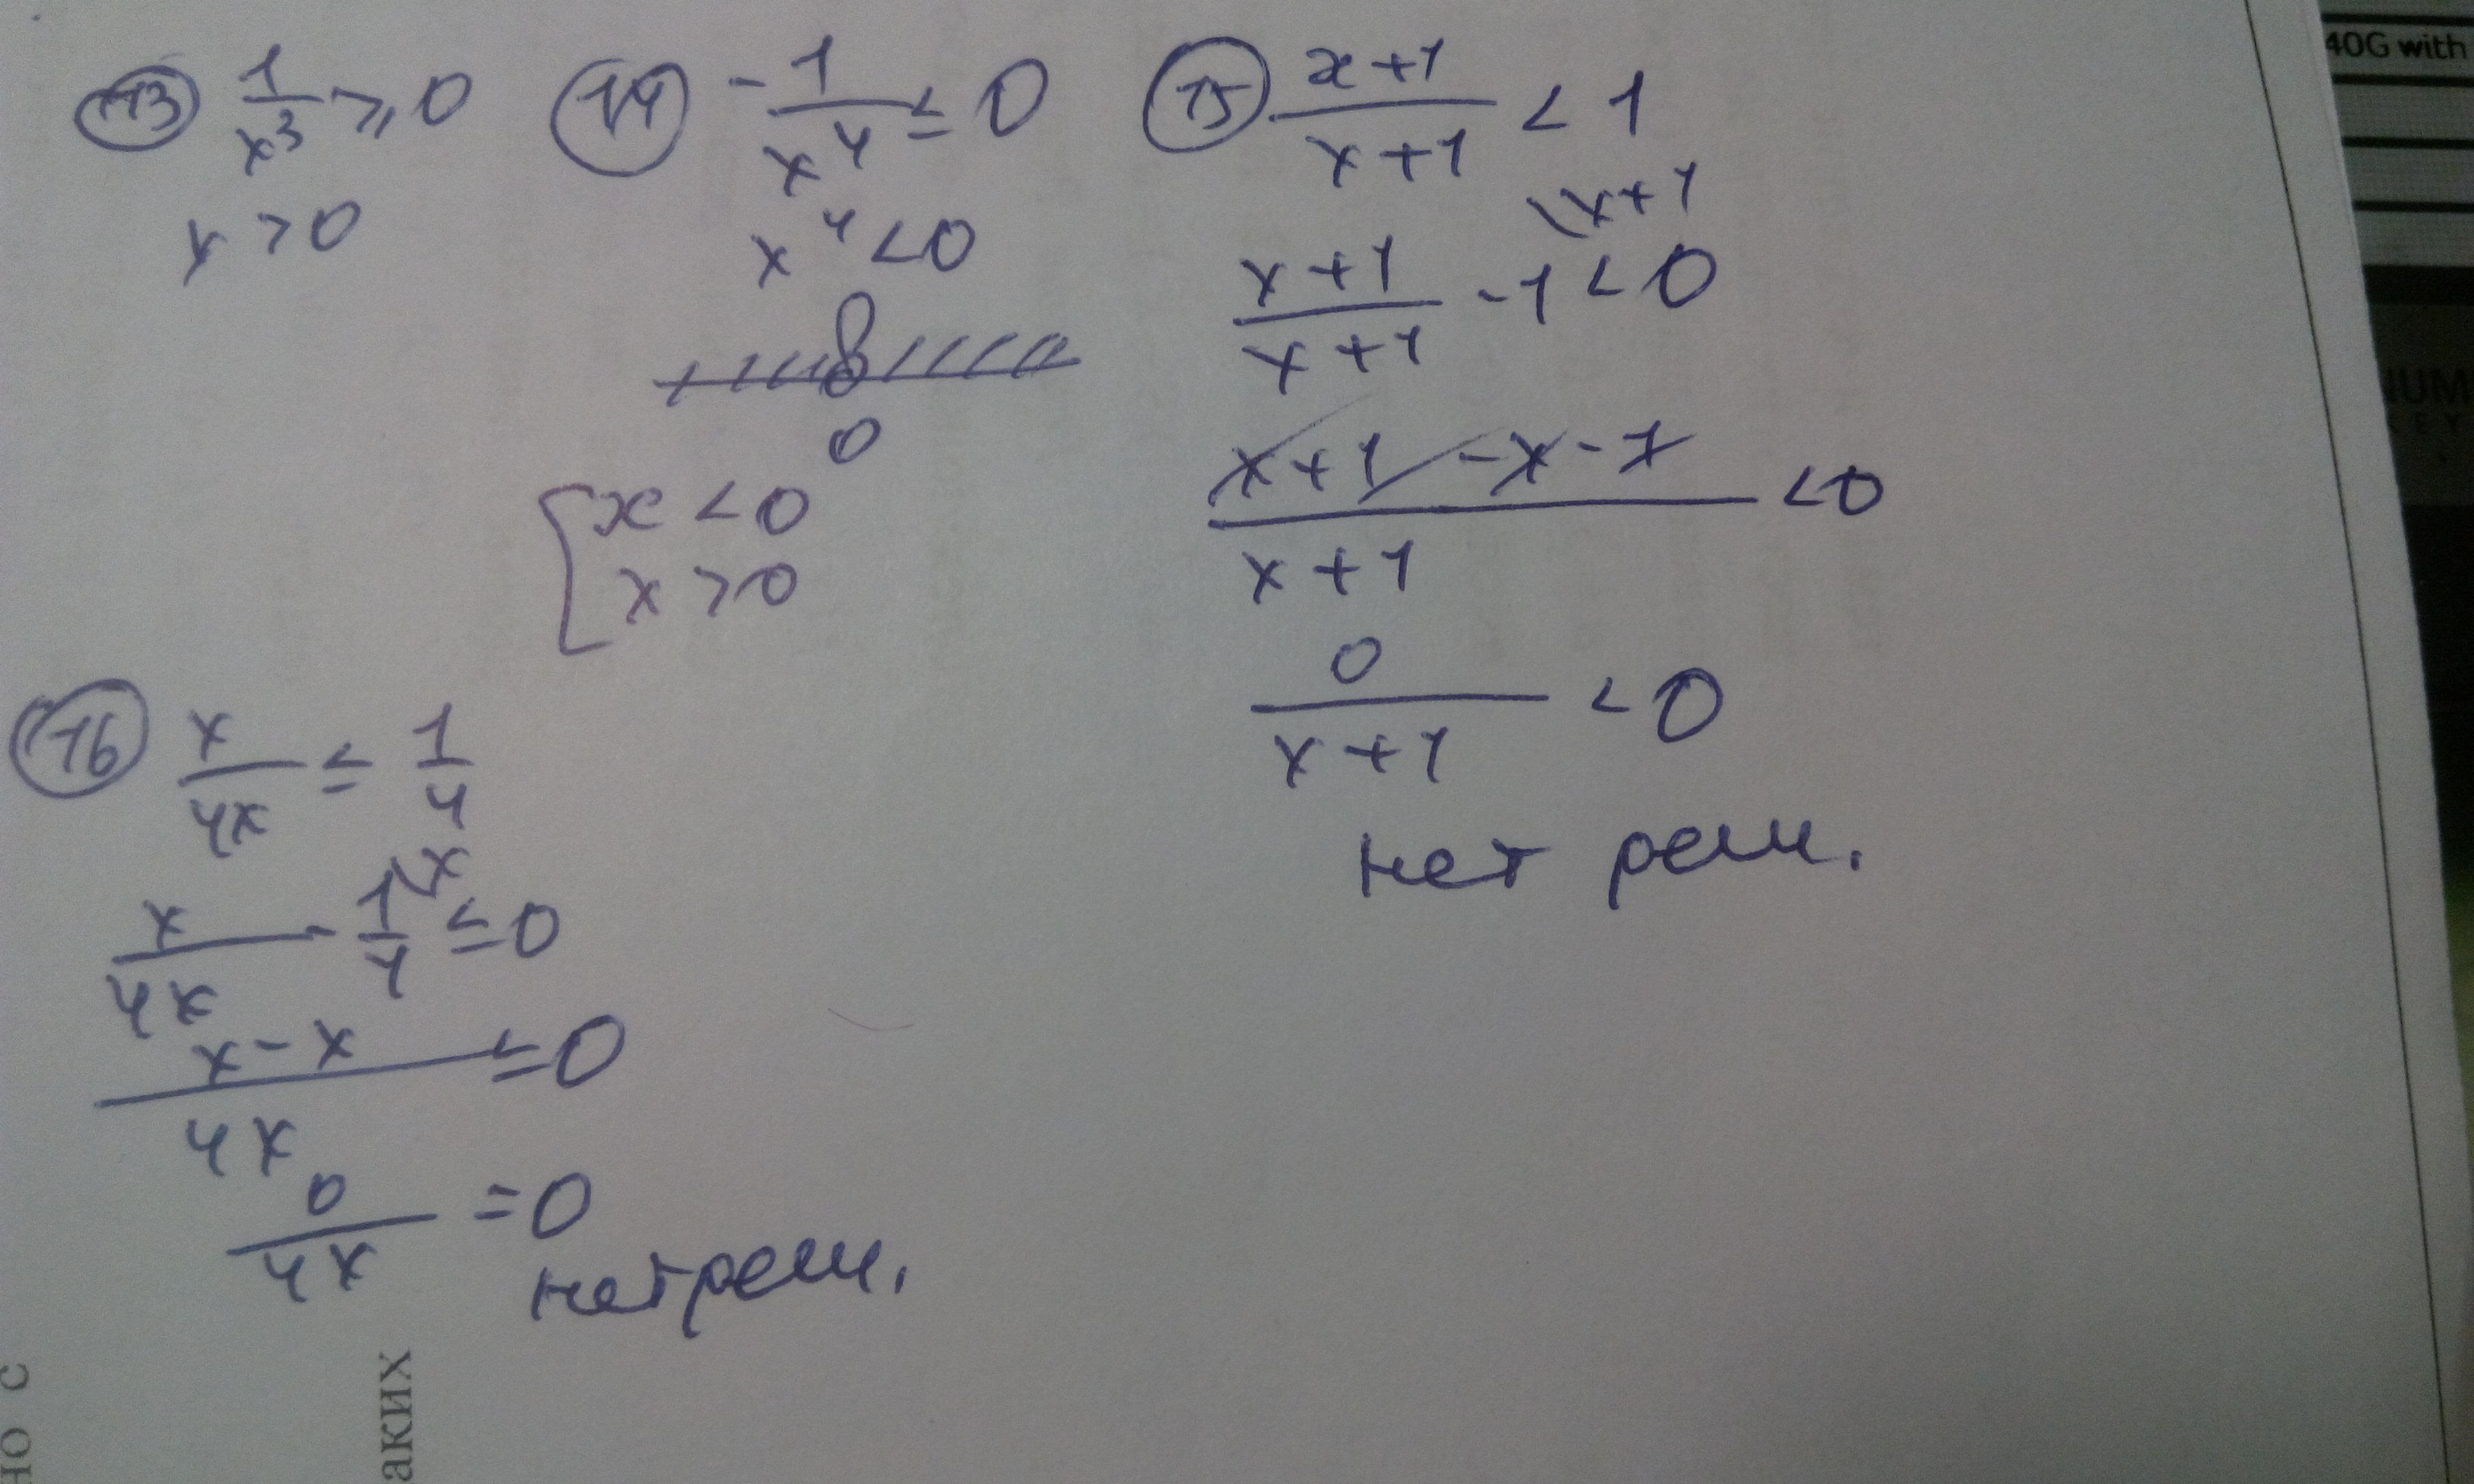 13 1/x³ ≥ 0
x > 0
14 -1/x⁴ ≤ 0
x⁴ < 0
0
x < 0
x > 0
15 x+1/x+1 < 1
x+1/x+1 - 1 \x+1 < 0
x+1-x-1/x+1 < 0
0/x+1 < 0
нет реш.
16 x/4x ≤ 1/4
x/4x - 1/4 \x ≤ 0
x-x/4x ≤ 0
0/4x = 0
нет реш.
но с
аких
40G with
NUM